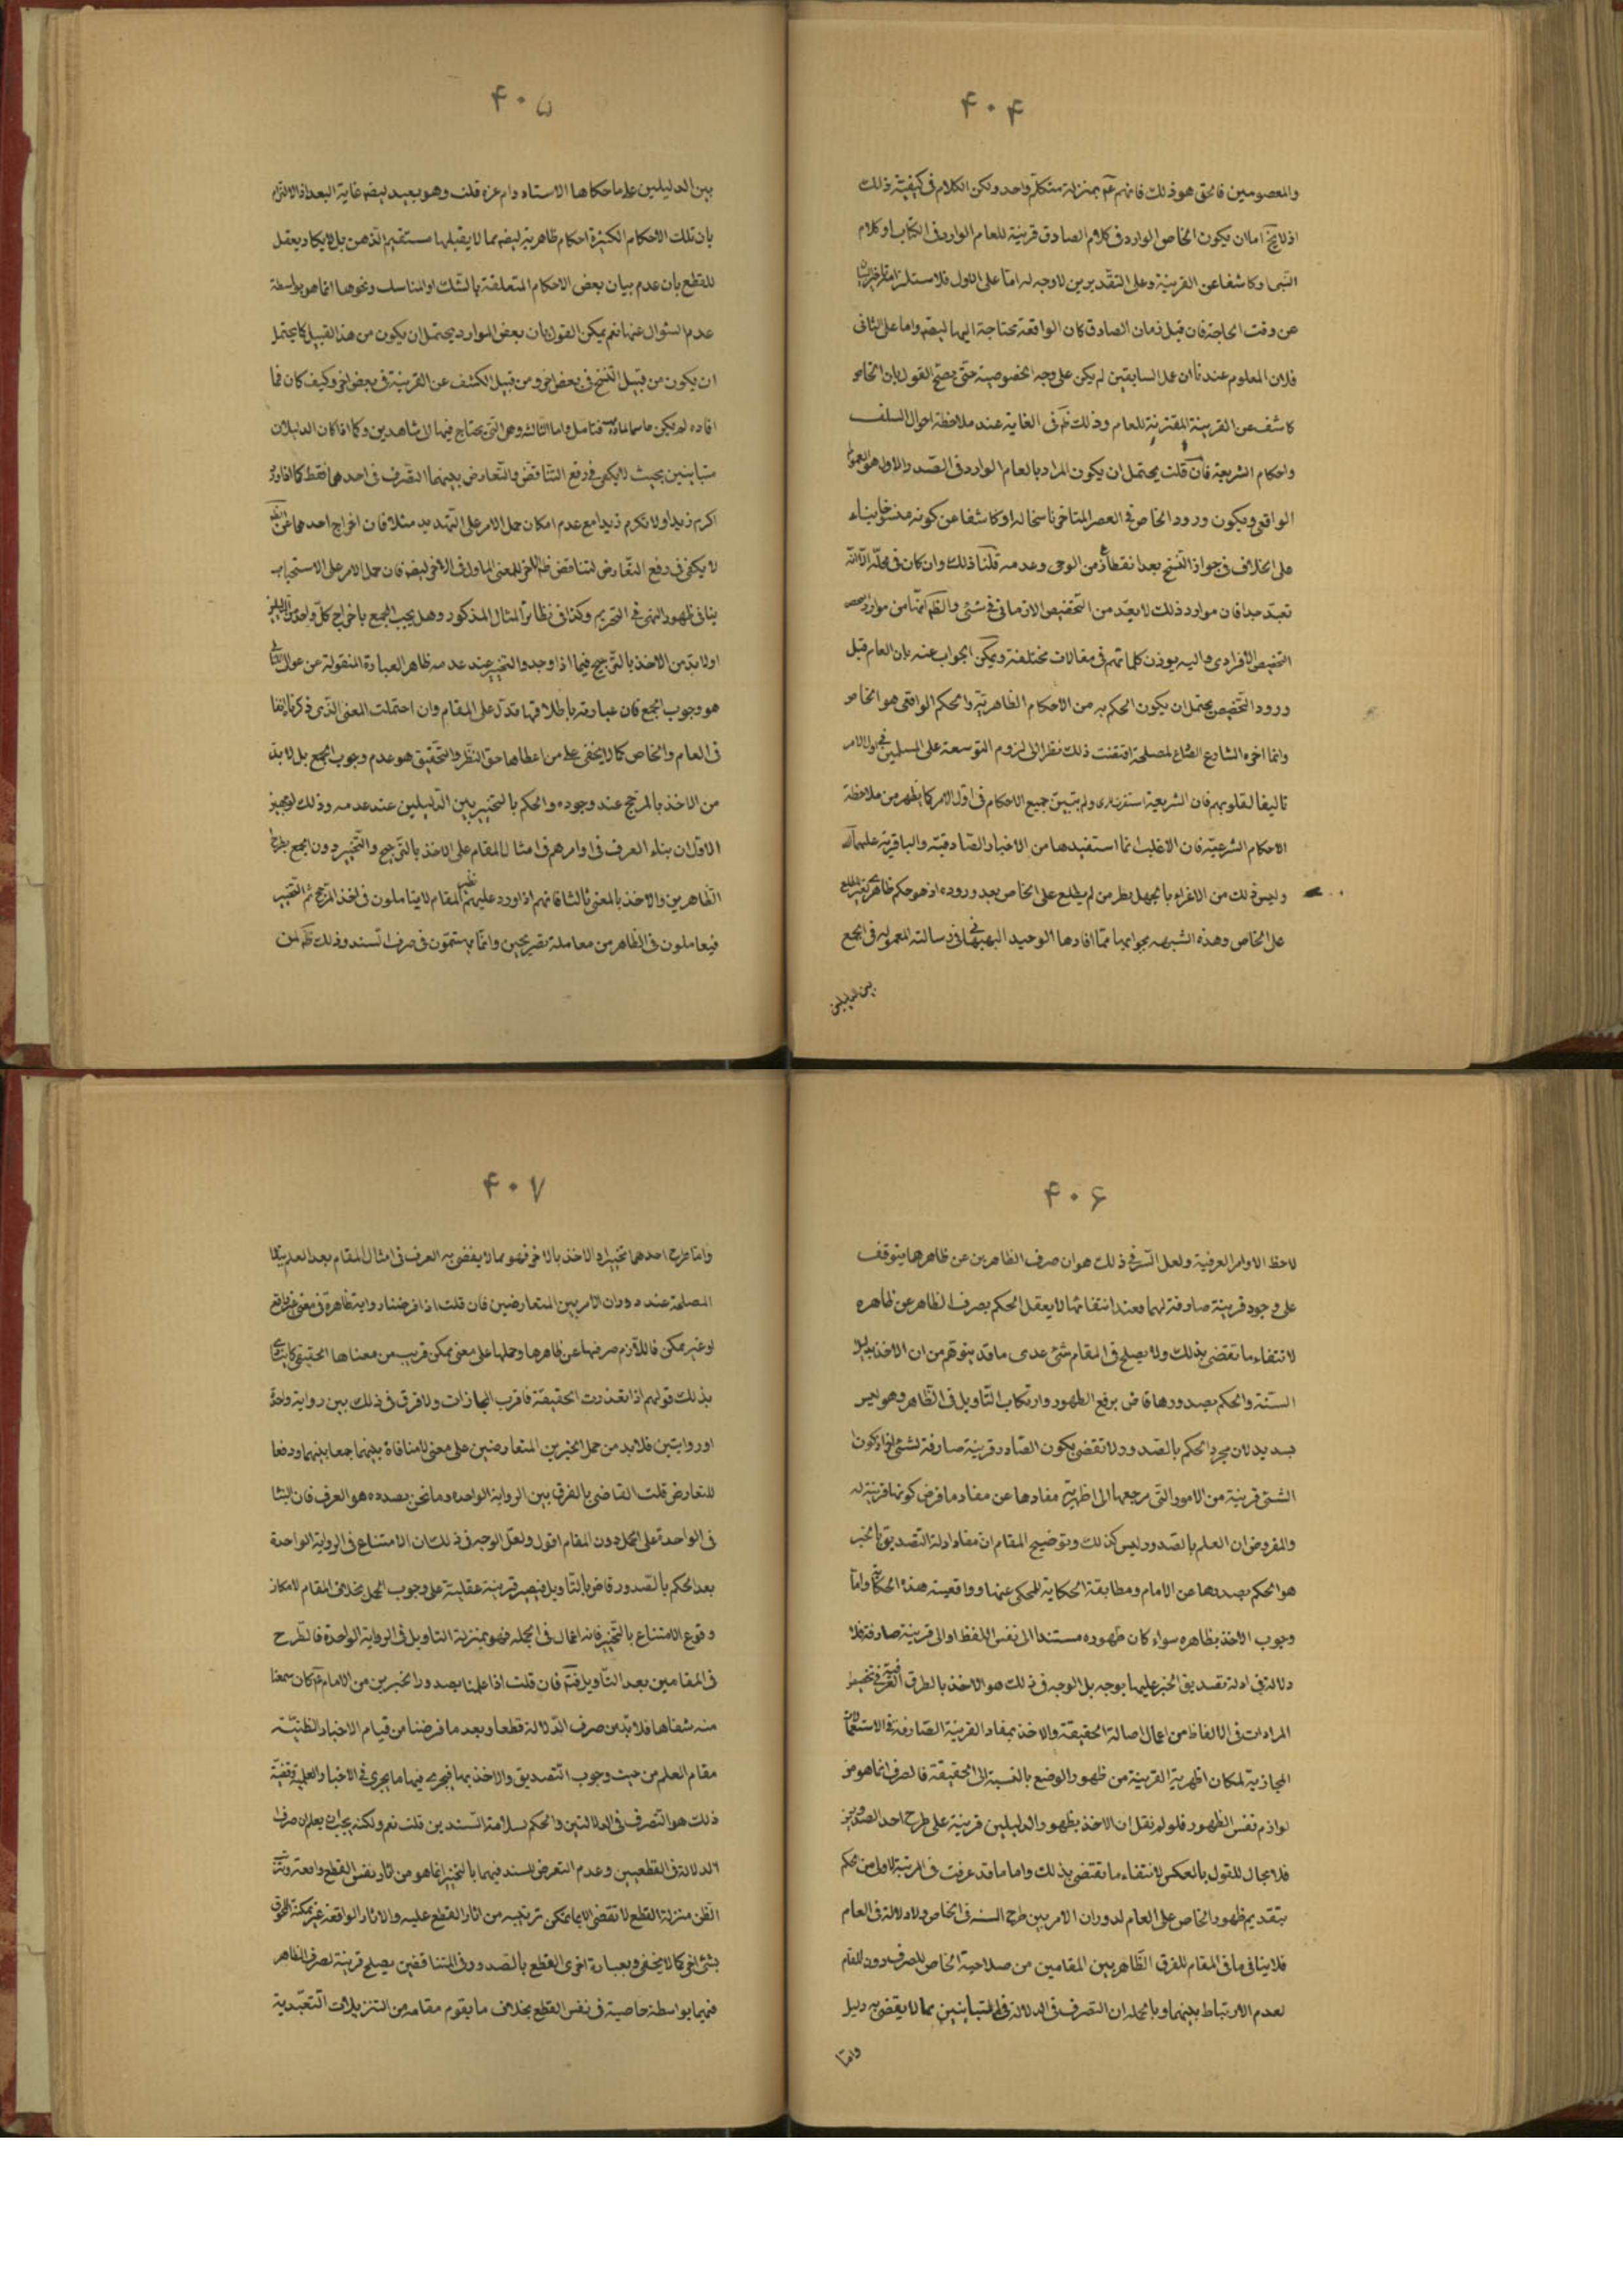 ۴۰۴
والمعصومين فالحق هو ذلك فانهم عم بمنزلة متكلم واحد ولكن الكلام فى كيفية ذلك
اذ لا يخ اما ان يكون الخاص الوارد فى كلام الصادق قرينة للعام الوارد فى الكتاب او كلام
النبى او كاشفا عن القرينة وعلى التقديرين لا وجه له اما على الاول فلاستلزامه تاخير البيان
عن وقت الحاجة فان قبل زمان الصادق كان الواقعة محتاجة اليها ايضه واما على الثانى
فلان المعلوم عندنا ان عمل السابقين لم يكن على وجه الخصوصية حتى يصح القول بان الخاص
كاشف عن القرينة المقترنة للعام وذلك ظ فى الغاية عند ملاحظة احوال السلف
واحكام الشريعة فان قلت يحتمل ان يكون المراد بالعام الوارد فى الصدر الاول هو العموم
الواقعى ويكون ورود الخاص فى العصر المتاخر ناسخا له او كاشفا عن كونه منسوخا بناء
على الخلاف فى جواز النسخ بعد انقطاع من الوحى وعدمه قلنا ذلك وان كان فى محله الا انه
بعيد جدا فان موارد ذلك لا يعد من التخصيص الازمانى فى شئ والظ انها من موارد
التخصيص الافرادى واليه يوذن كلماتهم فى مقالات مختلفة ويمكن الجواب عنه بان العام قبل
ورود التخصيص يحتمل ان يكون الحكم به من الاحكام الظاهرية والحكم الواقعى هو الخاص
وانما اخره الشارع لمصلحة اقتضت ذلك نظرا الى لزوم التوسعة على المسلمين فى اول الامر
تاليفا لقلوبهم فان الشريعة ولم يتبين جميع الاحكام فى اول الامر كما يظهر من ملاحظة
الاحكام الشرعية فان الاغلب انما استفيدها من الاخبار الصادقية والباقرية عليهما
وليس ذلك من الاغراء بالجهل بطر من لم يطلع على الخاص بعد وروده اذ هو حكم ظاهرى لغير المطلع
على الخاص وهذه الشبهه بجوابها مما افادها الوحيد البهبهانى فى رسالته المعمولة فى الجمع
بين الدليلين
۴۰۵
بين الدليلين على ما حكاها الاستاد دام عزه قلت وهو بعيد ايضه غاية البعد اذ الالتزام
بان تلك الاحكام الكثيرة احكام ظاهرية ايضه مما لا يقبلها مستقيم الذهن بل لا يكاد يعقل
للقطع بان عدم بيان بعض الاحكام المتعلقة بالشك او المناسك ونحوها انما هو بواسطة
عدم السئوال عنها نعم يمكن القول بان بعض الموارد يحتمل ان يكون من هذا القبيل كما يحتمل
ان يكون من قبيل النسخ فى بعض اخر ومن قبيل الكشف عن القرينة فى بعض اخر وكيف كان فما
افاده لم يكن حاسما لمادة فتامل واما الثالثه وهى التى يحتاج فيها الى شاهدين وكما اذا كان الدليلان
متباينين بحيث لا يكفى فى رفع التناقض والتعارض بينهما التصرف فى احدهما فقط كما اذا ورد
اكرم زيدا ولا تكرم زيدا مع عدم امكان حمل الامر على التهديد مثلا فان اخراج احدهما عن الظهور
لا يكفى فى رفع التعارض لتناقض ظ للمعنى الماول فى الاخر ايضه فان حمل الامر على الاستحباب
ينافى ظهور النهى فى التحريم وكذا فى نظائر المثال المذكور وهل يجب الجمع باخراج كل واحد
اولا بد من الاخذ بالترجيح فيما اذا وجد والتخيير عند عدمه ظاهر العبارة المنقولة عن عوالى
هو وجوب الجمع فان عبارته باطلاقها تدل على المقام وان احتملت المعنى الذى ذكرنا انفا
فى العام والخاص كما لا يخفى على من اعطاها حق النظر والتحقيق هو عدم وجوب الجمع بل لا بد
من الاخذ بالمرجح عند وجوده والحكم بالتخيير بين الدليلين عند عدمه وذلك لوجهين
الاول ان بناء العرف فى اوامرهم فى امثال المقام على الاخذ بالترجيح والتخيير دون الجمع بطرح
الظاهرين والاخذ بالمعنى ثالثا فانهم اذا اورد عليهم نظير المقام لا يتاملون فى اخذ المرجح ثم التخيير
فيعاملون فى الظاهرين معاملة نصريحين وانما يهتمون فى صرف السند وذلك ظ لمن
۴۰۶
لاحظ الاوامر العرفية ولعل السر فى ذلك هو ان صرف الظاهرين عن ظاهرها يتوقف
على وجود قرينة صارفة لهما فعند انتفائها لا يعقل الحكم بصرف الظاهر عن ظاهره
لانتفاء ما تقضى بذلك ولا يصلح فى المقام شئ عدى ما قد يتوهم من ان الاخذ بدليل
السنة والحكم بصدورها قاض برفع الظهور وارتكاب التاويل فى الظاهر وهو ليس
بسديد لان مجرد الحكم بالصدور لا تقضى بكون الصادر قرينة صارفة لشئ اخر اذ كون
الشئ قرينة من الامور التى مرجعها الى اظهرية مفادها عن مفاد ما فرض كونها قرينة له
والمفروض ان العلم بالصدور ليس كذلك وتوضيح المقام ان مفاد ادلة التصديق بالخبر
هو الحكم بصدورها عن الامام ومطابقة الحكاية للمحكى عنها وواقعية هذه الحكاية واما
وجوب الاخذ بظاهره سواء كان ظهوره مستندا الى نفس اللفظ او الى قرينة صارفة فلا
دلالة فى ادلة تصديق الخبر عليها بوجه بل الوجه فى ذلك هو الاخذ بالطرق العرفية فى تشخيص
المرادات فى الالفاظ من اعمال اصالة الحقيقة والاخذ بمفاد القرينة الصارفة فى الاستعمالات
المجازية لمكان اظهرية القرينة من ظهور الوضع بالنسبة الى الحقيقة فالصرف انما هو من
لوازم نفس الظهور فلو لم نقل ان الاخذ بظهور الدليلين قرينة على طرح احد الصدورين
فلا مجال للقول بالعكس لانتفاء ما تقتضى بذلك واما ما قد عرفت فى المرتبة الاولى من الحكم
بتقديم ظهور الخاص على العام لدوران الامر بين طرح السند فى الخاص والدلالة فى العام
فلا ينافى ما فى المقام للفرق الظاهر بين المقامين من صلاحية الخاص للصرف دون المقام
لعدم الارتباط بينهما وبالجمله ان التصرف فى الدلالة فى المتباينين مما لا يقضى به دليل
واما
۴۰۷
واما طرح احدهما تخييرا والاخذ بالاخر فهو مما لا يفضى به العرف فى امثال المقام بعد العلم
المصلحة عند دوران الامر بين المتعارضين فان قلت اذا فرضنا رواية ظاهرة فى معنى غير واقع
او غير ممكن فاللازم صرفها عن ظاهرها وحملها على معنى ممكن قريب من معناها الحقيقى كما ينادى
بذلك قولهم اذا تعذرت الحقيقة فاقرب المجازات ولا فرق فى ذلك بين رواية واحدة
او روايتين فلا بد من حمل الخبرين المتعارضين على معنى لا منافاة بينهما جمعا بينهما ودفعا
للتعارض قلت القاضى بالفرق بين الرواية الواحده وما نحن بصدده هو العرف فان البناء
فى الواحدة على الحمل دون المقام اقول ولعل الوجه فى ذلك ان الامتناع فى الرواية الواحدة
بعد الحكم بالصدور قاض بالتاويل فيصير قرينة عقلية على وجوب الحمل بخلاف المقام لامكان
وقوع الامتناع بالتخيير فانه اعمال فى الجمله فهو بمنزلة التاويل فى الرواية الواحدة فالطرح
فى المقامين بعد التاويل فتم فان قلت اذا علمنا بصدور الخبرين من الامام عم كان سمعنا
منه شفاها فلا بد من صرف الدلالة قطعا وبعد ما فرضنا من قيام الاخبار الظنية
مقام العلم من حيث وجوب التصديق والاخذ بها فيجرى فيها ما يجرى فى الاخبار العلمية وقضية
ذلك هو التصرف فى الدلالتين والحكم بسلامة السندين قلت نعم ولكنه يجب ان يعلم ان صرف
الدلالة فى القطعيين وعدم التعرض للسند فيهما بالتخيير انما هو من اثار نفس القطع واقعة
الظن منزلة القطع لا تقضى الا بما يمكن ترتيبه من اثار القطع عليه والاثار الواقعة غير ممكنة اللحوق
بشئ اخر كما لا يخفى وبعبارة اخرى القطع بالصدور فى المتناقضين يصلح قرينة لصرف الظاهر
فيهما بواسطة خاصية فى نفس القطع بخلاف ما يقوم مقامه من التنزيلات التعبدية